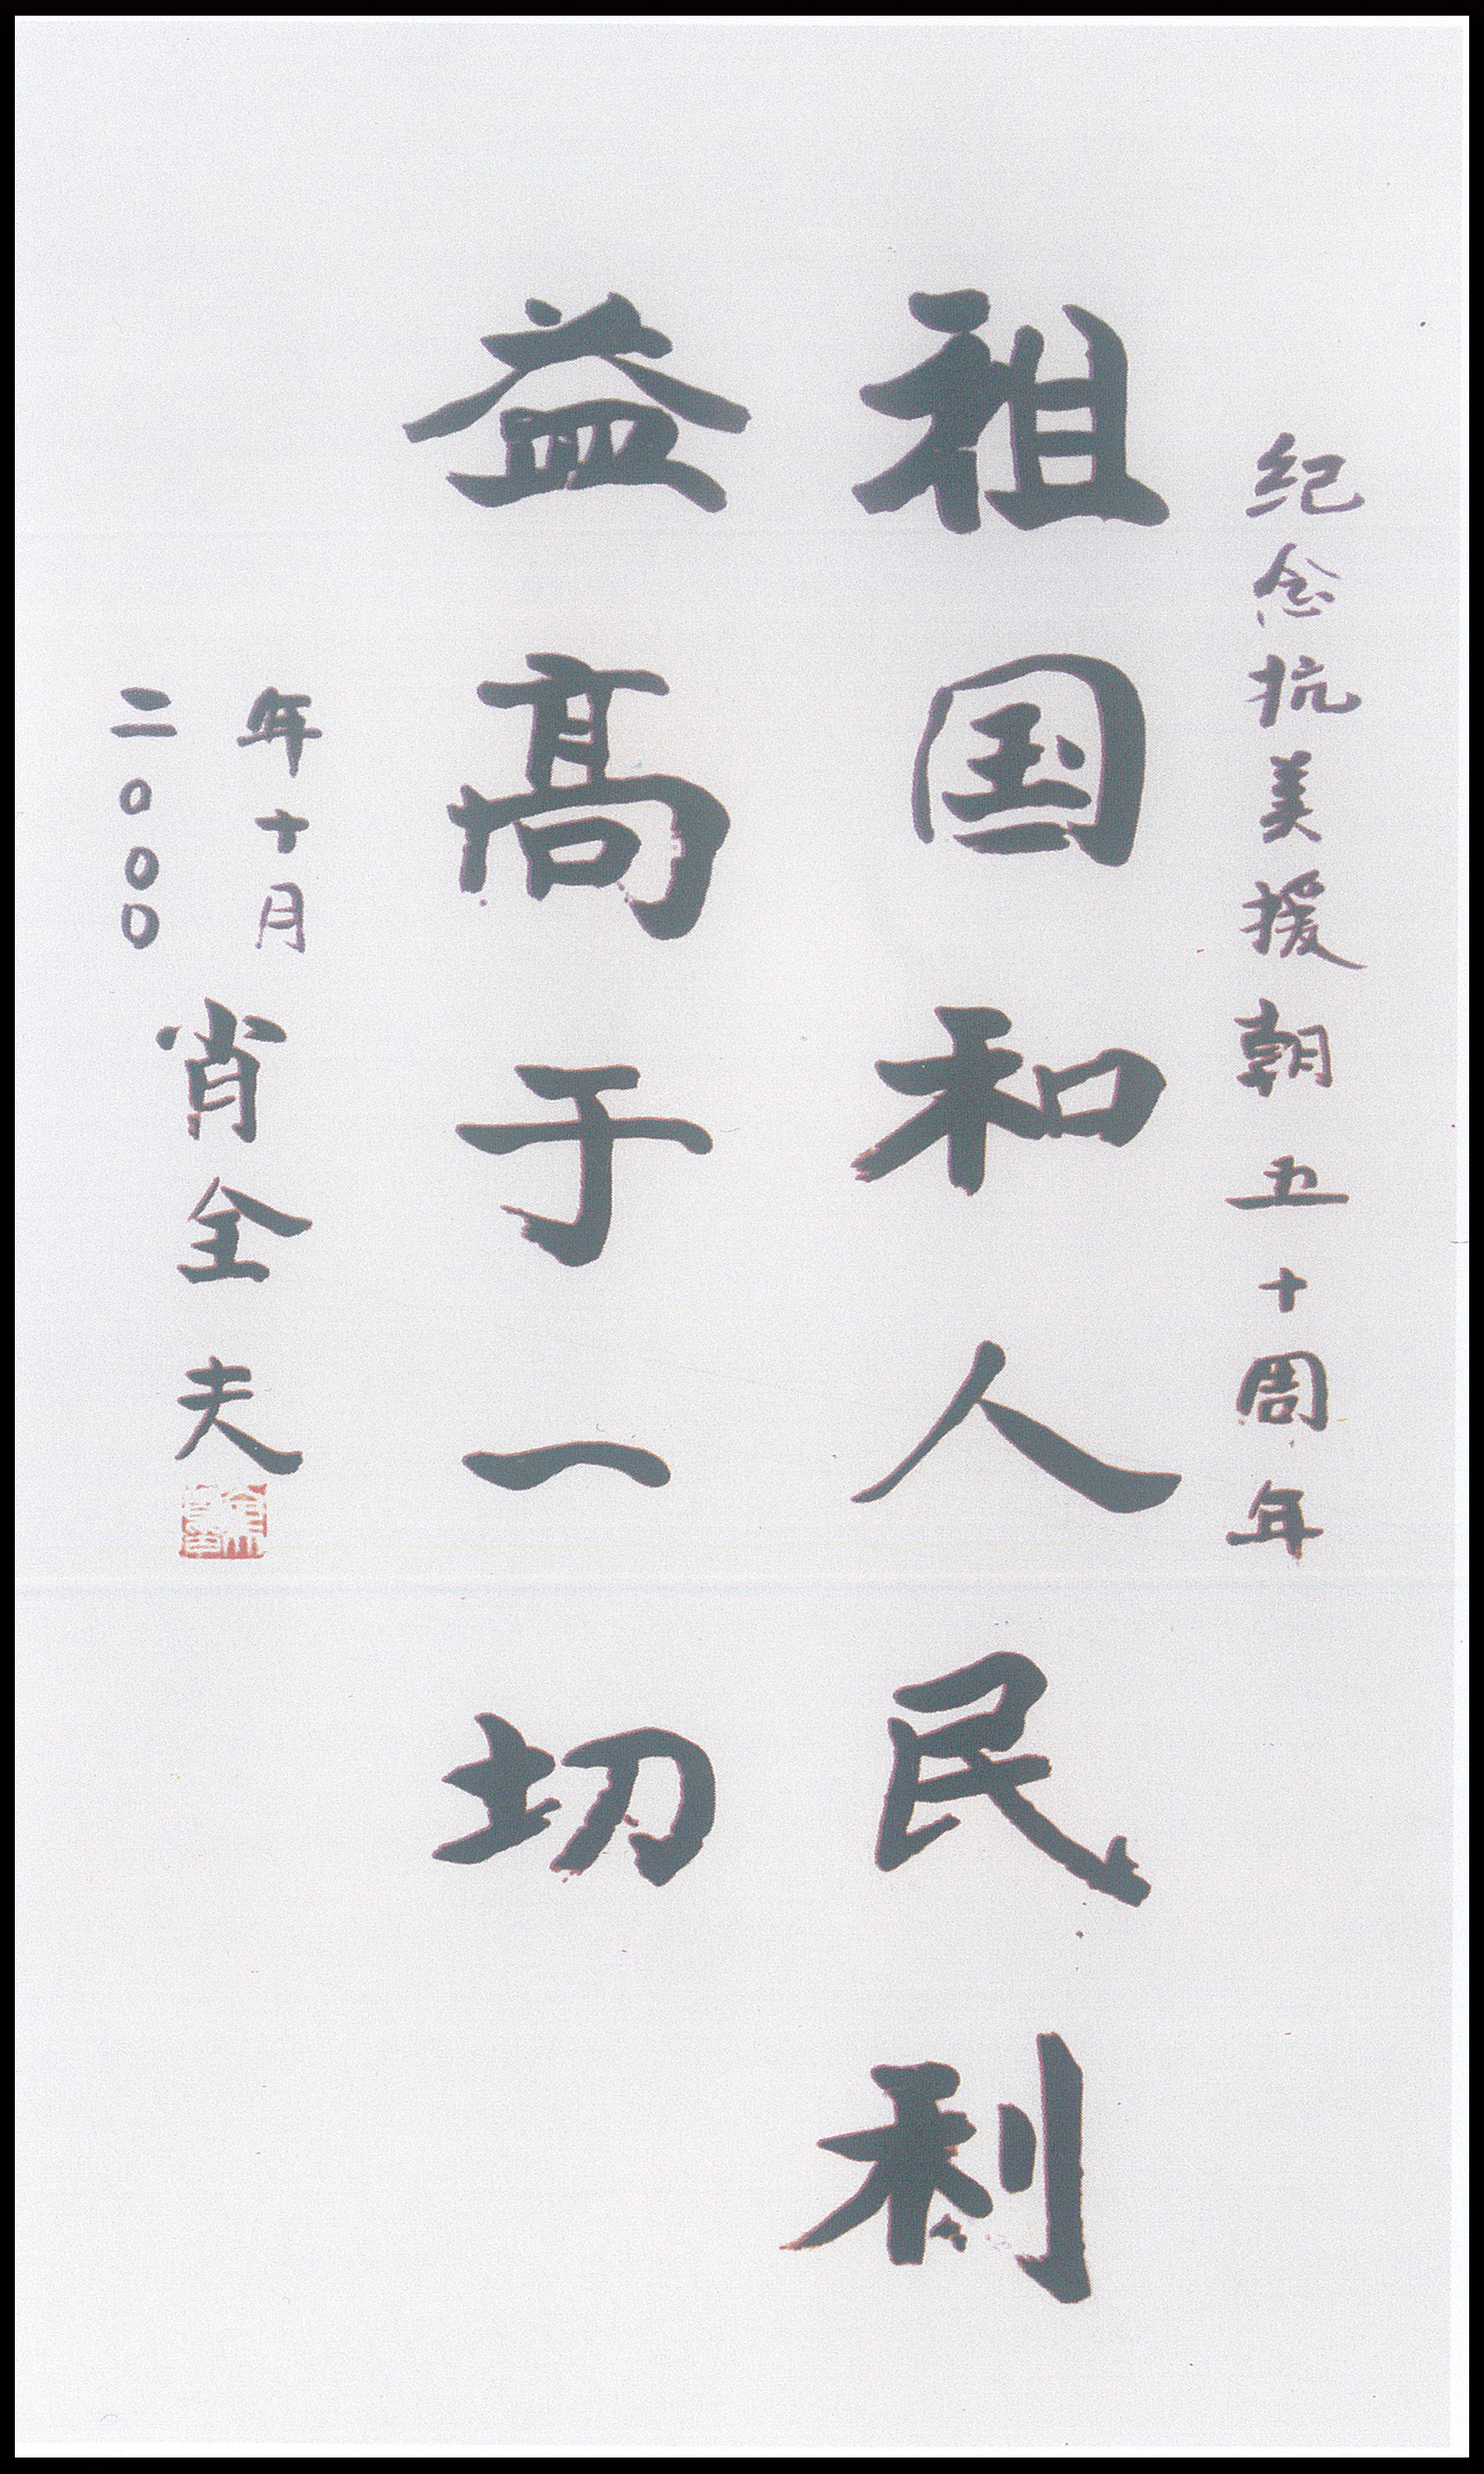 纪念抗美援朝五十周年
祖国和人民利
益高于一切
二〇〇〇
年十月
肖全夫